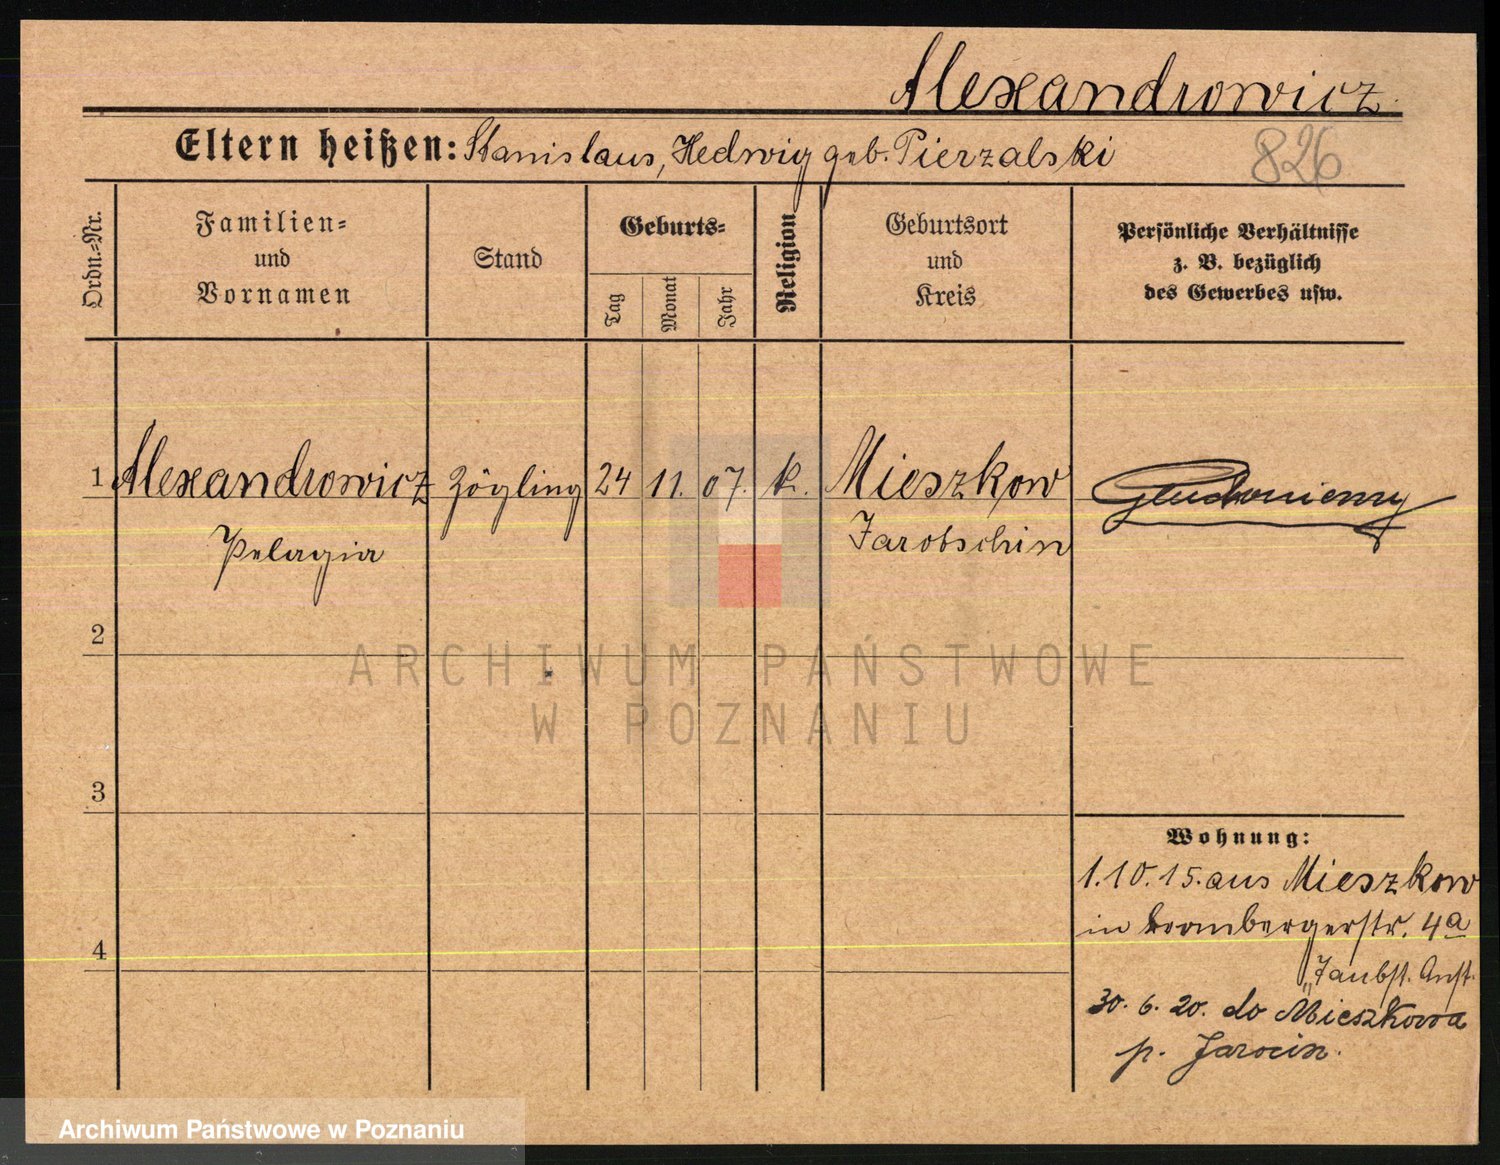 Alexandrowicz
Eltern heißen: Stanislaus, Hedwig geb. Pierzalski
826
Ordn.=Nr.
Familien=
und
Vornamen
Stand
Geburts=
Tag
Monat
Jahr
Religion
Geburtsort
und
Kreis
Persönliche Verhältnisse
z. B. bezüglich
des Gewerbes usw.
1 Alexandrowicz Zögling 24 11. 07. k. Mieszkow
Pelagia Jarotschin
2
ARCHIWUM PAŃSTWOWE
W POZNANIU
3
Wohnung:
1.10.15. aus Mieszkow
in Brombergerstr. 4a
"Taubst. Anst.
4
30. 6. 20. do Mieszkowa
p. Jarocin.
Archiwum Państwowe w Poznaniu